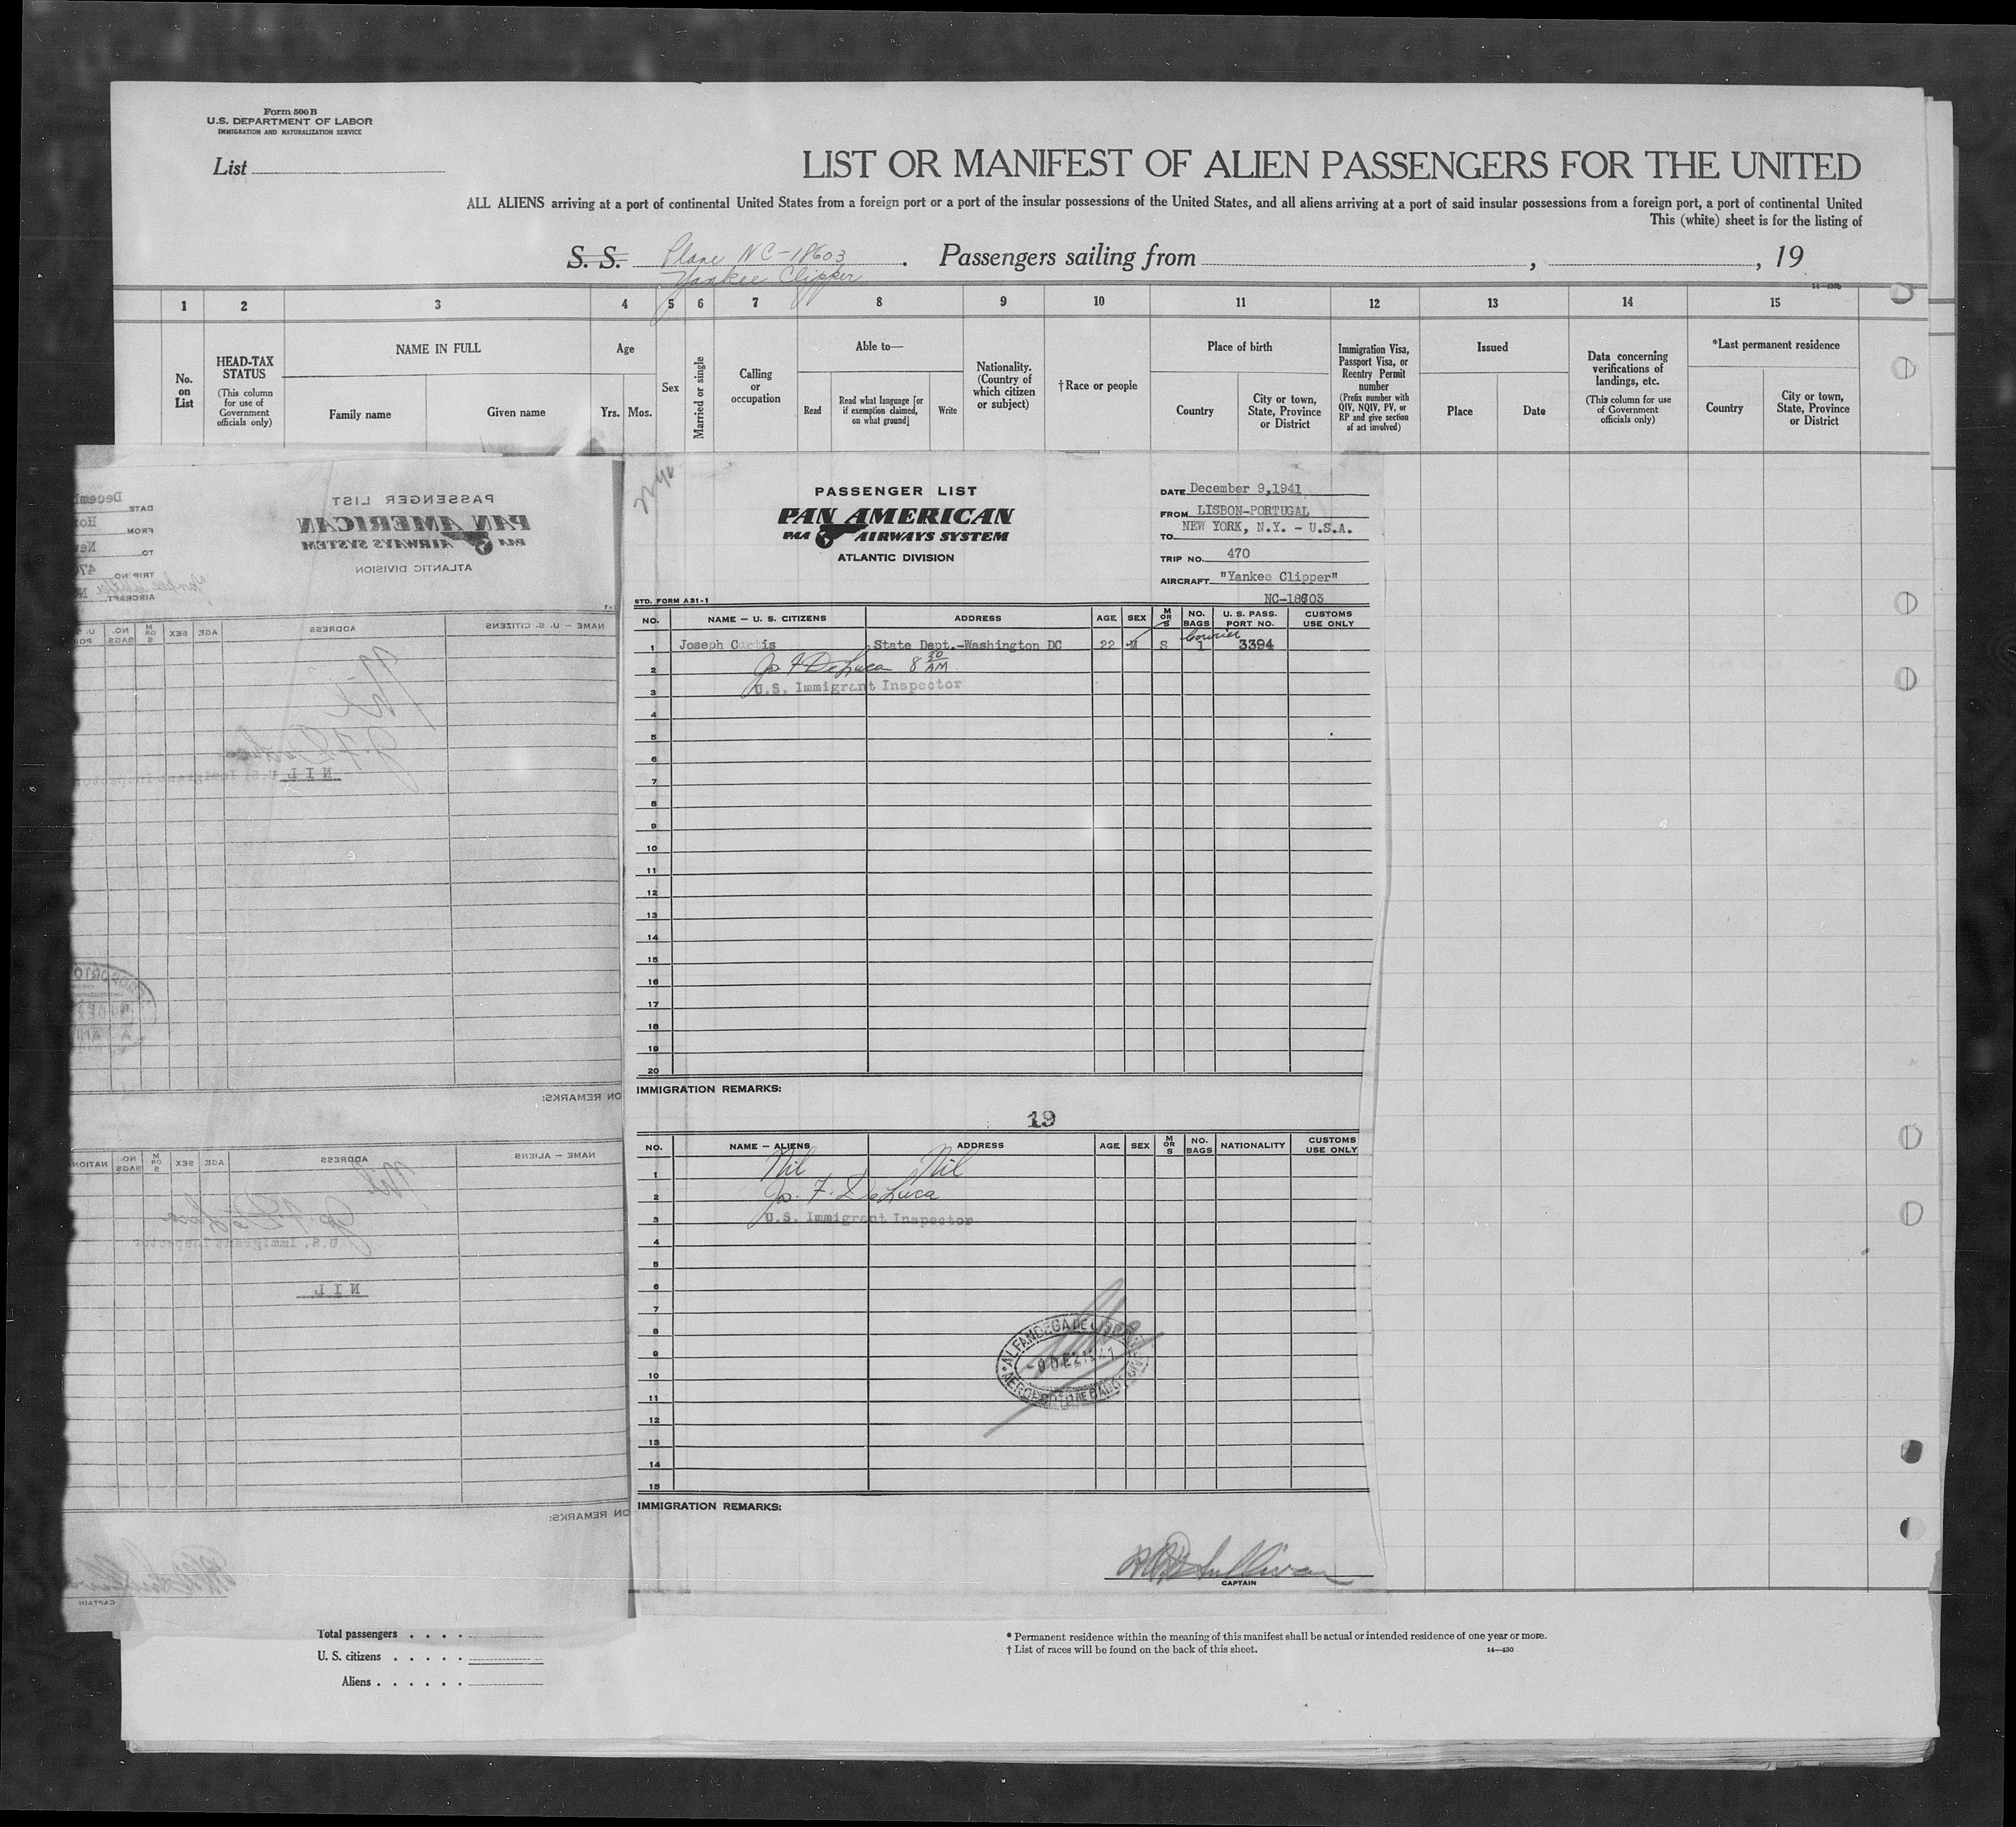 Form 500 B
U.S. DEPARTMENT OF LABOR
IMMIGRATION AND NATURALIZATION SERVICE
List
LIST OR MANIFEST OF ALIEN PASSENGERS FOR THE UNITED
ALL ALIENS arriving at a port of continental United States from a foreign port or a port of the insular possessions of the United States, and all aliens arriving at a port of said insular possessions from a foreign port, a port of continental United
This (white) sheet is for the listing of
S. S. Plane NC-18603 . Passengers sailing from , , 19
Yankee Clipper
1 2 3 4 5 6 7 8 9 10 11 12 13 14 15
No. on List
HEAD-TAX STATUS
(This column for use of Government officials only)
NAME IN FULL
Family name Given name
Age
Yrs. Mos.
Sex
Married or single
Calling or occupation
Able to—
Read
Read what language [or if exemption claimed, on what ground]
Write
Nationality. (Country of which citizen or subject)
† Race or people
Place of birth
Country
City or town, State, Province or District
Immigration Visa, Passport Visa, or Reentry Permit number
(Prefix number with QIV, NQIV, PV, or RP and give section of act involved)
Issued
Place Date
Data concerning verifications of landings, etc.
(This column for use of Government officials only)
*Last permanent residence
Country
City or town, State, Province or District
PASSENGER LIST
PAN AMERICAN
AIRWAYS SYSTEM
ATLANTIC DIVISION
DATE
FROM
TO
TRIP NO.
AIRCRAFT Yankee Clipper
NAME — U. S. CITIZENS ADDRESS AGE SEX M OR S NO. BAGS
Nil
NIL
U.S. Immigrant Inspector
ON REMARKS:
NAME — ALIENS ADDRESS AGE SEX M OR S NO. BAGS
Nil
U.S. Immigrant Inspector
NIL
ON REMARKS:
CAPTAIN
PASSENGER LIST
PAN AMERICAN
PAA AIRWAYS SYSTEM
ATLANTIC DIVISION
DATE December 9,1941
FROM LISBON-PORTUGAL
TO NEW YORK, N.Y. - U.S.A.
TRIP NO. 470
AIRCRAFT "Yankee Clipper"
NC-18603
STD. FORM A31-1
NO. NAME — U. S. CITIZENS ADDRESS AGE SEX M OR S NO. BAGS U. S. PASS. PORT NO. CUSTOMS USE ONLY
Courier
1 Joseph Curtis State Dept.-Washington DC 22 M S 1 3394
2 Jos F DeLuca 8 30 AM
3 U.S. Immigrant Inspector
4
5
6
7
8
9
10
11
12
13
14
15
16
17
18
19
20
IMMIGRATION REMARKS:
19
NO. NAME — ALIENS ADDRESS AGE SEX M OR S NO. BAGS NATIONALITY CUSTOMS USE ONLY
1 Nil Nil
2 Jos. F. DeLuca
3 U.S. Immigrant Inspector
4
5
6
7
8
9
10
11
12
13
14
15
ALFANDEGA DE
IMMIGRATION REMARKS:
Sullivan
CAPTAIN
Total passengers . . . .
U. S. citizens . . . . .
Aliens . . . . . .
* Permanent residence within the meaning of this manifest shall be actual or intended residence of one year or more.
† List of races will be found on the back of this sheet. 14—430